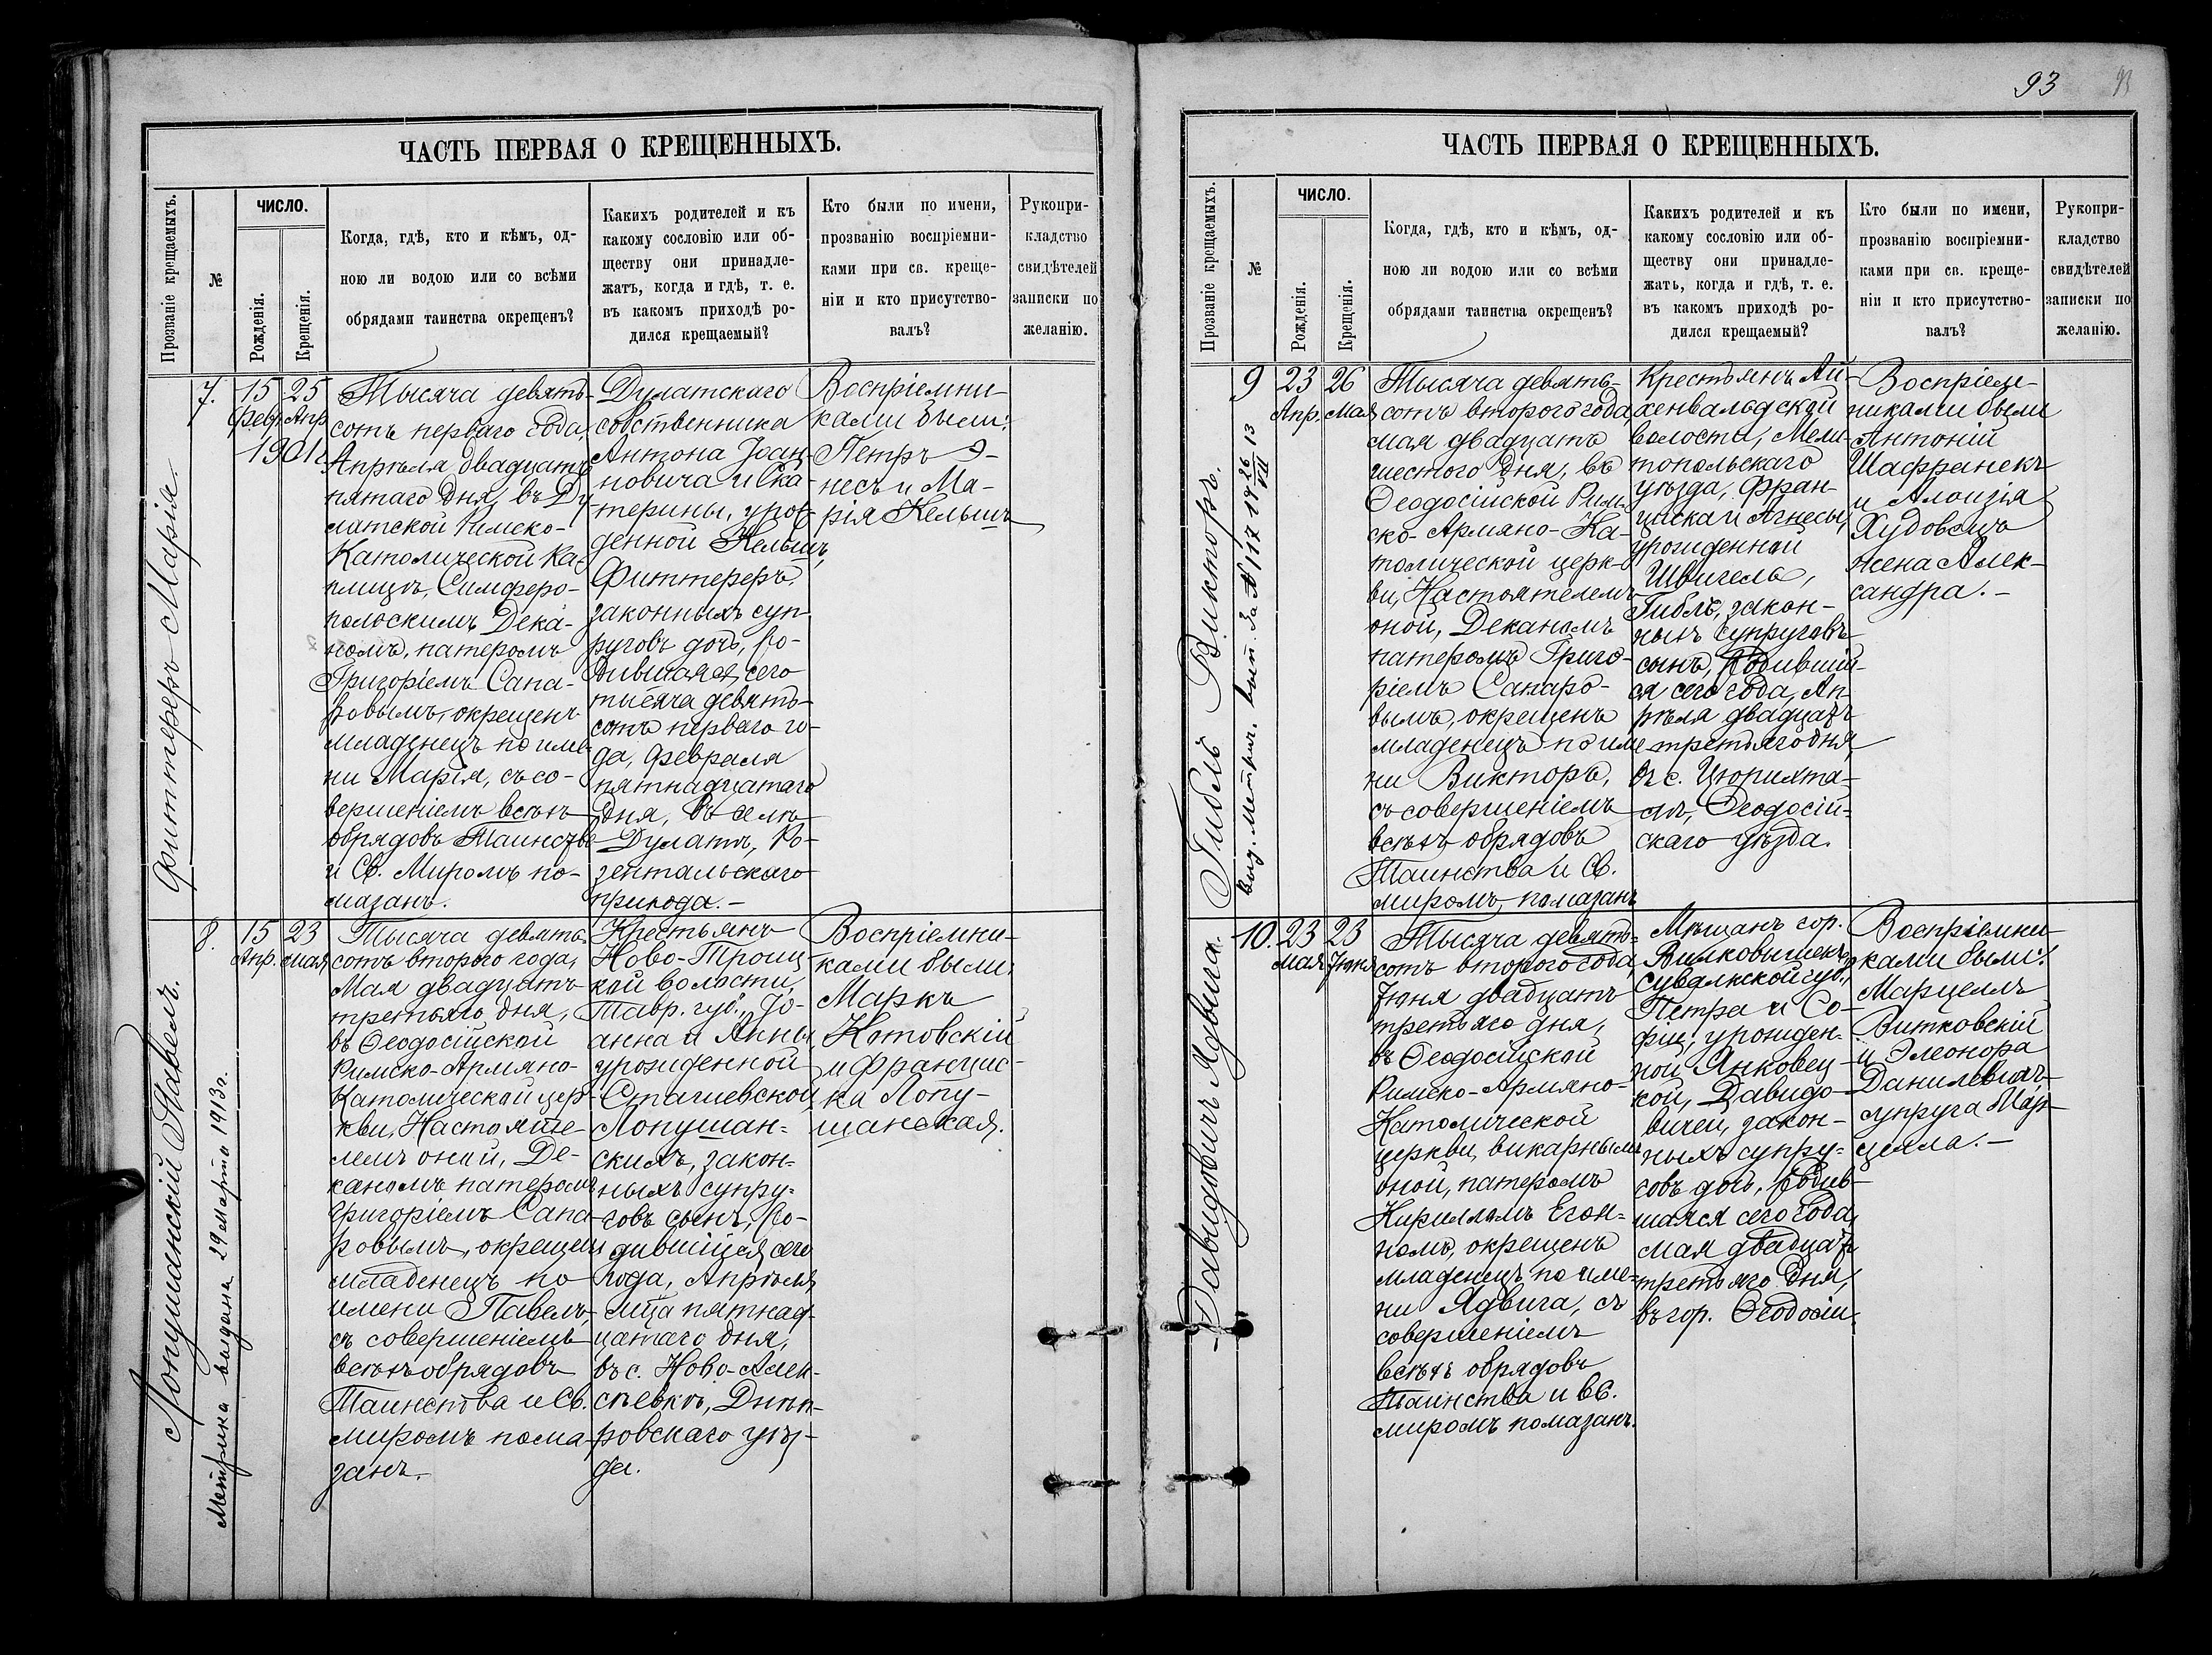 ЧАСТЬ ПЕРВАЯ О КРЕЩЕННЫХЪ.
Прозваніе крещаемыхъ.
№
ЧИСЛО.
Рожденія.
Крещенія.
Когда, гдѣ, кто и кѣмъ, од-
ною ли водою или со всѣми
обрядами таинства окрещенъ?
Какихъ родителей и къ
какому сословію или об-
ществу они принадле-
жатъ, когда и гдѣ, т. е.
въ какомъ приходѣ ро-
дился крещаемый?
Кто были по имени,
прозванію воспріемни-
ками при св. креще-
ніи и кто присутство-
валъ?
Рукопри-
кладство
свидѣтелей
записки по
желанію.
Фиттереръ Марія.
7.
15
Февр.
25
Апр.
1901 г.
Тысяча девять-
сотъ перваго года,
Апрѣля двадцать
пятаго дня, въ Ду-
латской Римско-
Католической ка-
плицѣ, Симферо-
польскимъ Дека-
номъ, патеромъ
Григоріемъ Сапа-
ровымъ, окрещенъ
младенецъ по име-
ни Марія, съ со-
вершеніемъ всѣхъ
обрядовъ Таинства
и Св. Миромъ по-
мазанъ.
Дулатскаго
собственника
Антона Іоан-
новича и Ека-
терины, урож-
денной Кельшъ,
Фиттереръ,
законныхъ суп-
руговъ дочь, ро-
дившаяся сего
тысяча девять-
сотъ перваго го-
да, Февраля
пятнадцатаго
дня, въ селѣ
Дулатъ, Ро-
зентальскаго
прихода.-
Воспріемни-
ками были:
Петръ Э-
несъ и Ма-
рія Кельшъ
Лопушанскій Павелъ.
Метрика выдана 29 марта 1913 г.
8.
15
Апр.
23
мая
Тысяча девять-
сотъ второго года,
Мая двадцать
третьяго дня,
въ Ѳеодосійской
Римско-Армяно-
Католической цер-
кви, Настояте-
лемъ оной, Де-
каномъ патеромъ
Григоріемъ Сапа-
ровымъ, окрещенъ
младенецъ по
имени Павелъ,
съ совершеніемъ
всѣхъ обрядовъ
Таинства и Св.
миромъ пома-
занъ.-
Крестьянъ
Ново-Троиц-
кой волости,
Тавр. губ., Іо-
анна и Анны
урожденной
Стагіевской
Лопушан-
скихъ, закон-
ныхъ супру-
говъ сынъ, ро-
дившійся сего
года, Апрѣля
м-ца пятнад-
цатаго дня,
въ с. Ново-Алек-
сѣевкѣ, Днѣп-
ровскаго уѣз-
да.
Воспріемни-
ками были:
Маркъ
Котовскій
и Францис-
ка Лопу-
шанская.
93
93
ЧАСТЬ ПЕРВАЯ О КРЕЩЕННЫХЪ.
Прозваніе крещаемыхъ.
№
ЧИСЛО.
Рожденія.
Крещенія.
Когда, гдѣ, кто и кѣмъ, од-
ною ли водою или со всѣми
обрядами таинства окрещенъ?
Какихъ родителей и къ
какому сословію или об-
ществу они принадле-
жатъ, когда и гдѣ, т. е.
въ какомъ приходѣ ро-
дился крещаемый?
Кто были по имени,
прозванію воспріемни-
ками при св. креще-
ніи и кто присутство-
валъ?
Рукопри-
кладство
свидѣтелей
записки по
желанію.
Гибль Викторъ.
Выд. метрич. вып. за № 117 19 26/VIII 13
9
23
Апр.
26
Мая
Тысяча девять-
сотъ второго года,
мая двадцать
шестого дня, въ
Ѳеодосійской Рим-
ско-Армяно-Ка-
толической церк-
ви, Настоятелемъ
оной, Деканомъ
патеромъ Григо-
ріемъ Сапаро-
вымъ, окрещенъ
младенецъ по име-
ни Викторъ,
съ совершеніемъ
всѣхъ обрядовъ
Таинства и Св.
миромъ помазанъ
Крестьянъ Ай-
хенвальдской
волости, Мели-
топольскаго
уѣзда, Фран-
циска и Агнесы,
урожденной
Швигель,
Гибль, закон-
ныхъ супруговъ
сынъ, родившій-
ся сего года, Ап-
рѣля двадцать
третьяго дня,
въ с. Цюрихта-
лѣ, Ѳеодосій-
скаго уѣзда.
Воспріем-
никами были
Антоній
Шафранекъ
и Алоизія
Худовецъ
жена Алек-
сандра.-
Давидовичъ Ядвига.
10.
23
мая
23
Іюня
Тысяча девять-
сотъ второго года,
Іюня двадцать
третьяго дня,
въ Ѳеодосійской
Римско-Армяно-
Католической
церкви, викарнымъ
оной, патеромъ
Кирилломъ Еган-
номъ, окрещенъ
младенецъ по име-
ни Ядвига, съ
совершеніемъ
всѣхъ обрядовъ
Таинства и Св.
миромъ помазанъ.
Мѣщанъ гор.
Вилковышекъ,
Сувалкской губ.,
Петра и Со-
фіи, урожден-
ной Янковец-
кой, Давидо-
вичей, закон-
ныхъ супру-
говъ дочь, родив-
шаяся сего года,
мая двадцать
третьяго дня,
въ гор. Ѳеодосіи.
Воспріемни-
ками были:
Марцеллъ
Витковскій
и Элеонора
Данилевичъ
супруга Мар-
целла.-